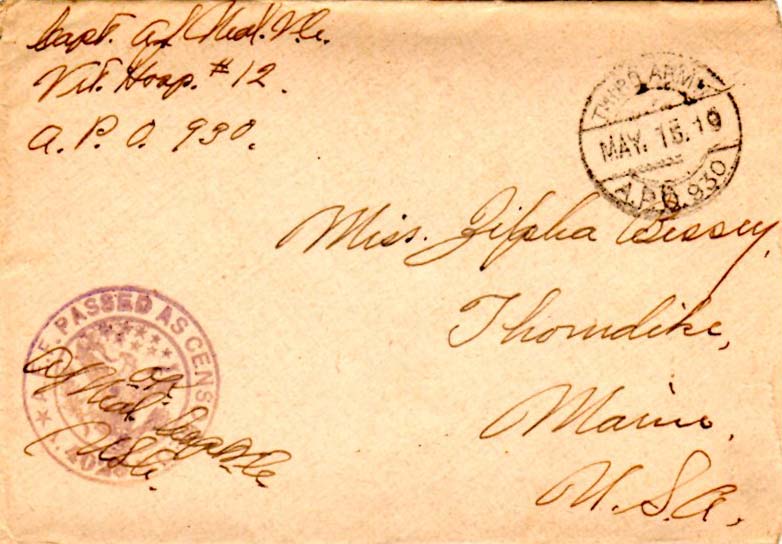 Capt. A J Neal. V.C.
Vet. Hosp. #12.
A. P. O. 930.
THIRD ARMY
MAY. 15. 19
A.P.O. 930
Miss. Zilpha Bessey,
Thorndike,
Maine,
U.S.A.
PASSED AS CENS
OK
A J Neal
Capt. V.C.